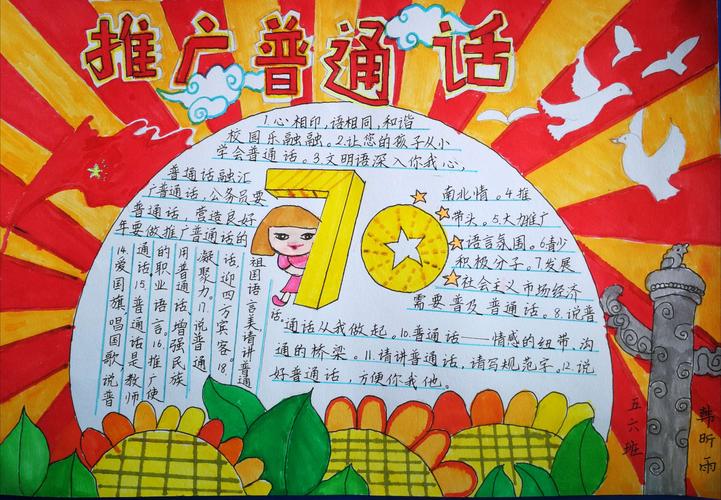 推广普通话
1.心相印,语相同,和谐
校园乐融融。2.让您的孩子从小
学会普通话。3.文明语深入你我心
普通话融汇南北情。4.推
广普通话,公务员要带头。5.大力推广
普通话,营造良好语言氛围。6.青少
年要做推广普通话的积极分子。7.发展
社会主义市场经济
需要普及普通话。8.说普
通话从我做起。10.普通话——情感的纽带,沟
通的桥梁。11.请讲普通话,请写规范字。12.说
好普通话,方便你我他。
14.爱国旗唱国歌,说普
通话15.普通话是教师
的职业语言。16.推广使
用普通话,增强民族
凝聚力。17.说普通
话,迎四方宾客。18.
祖国语言美,请讲普通
话。
70
五六班
韩昕雨